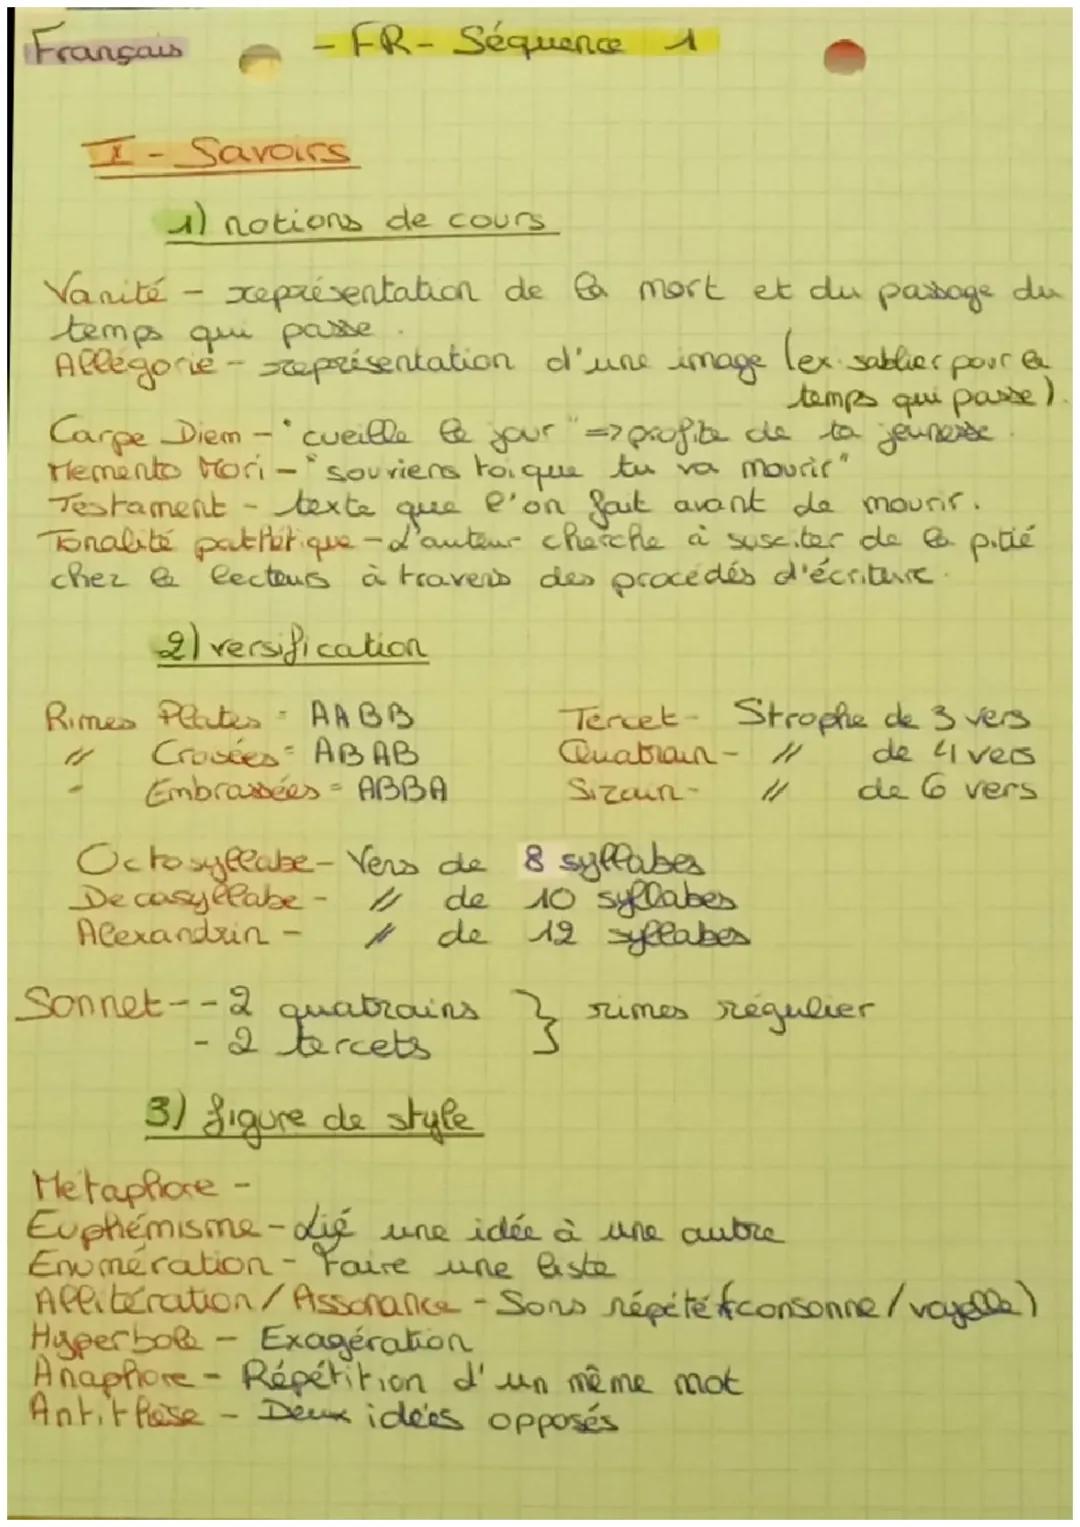 Français - FR - Séquence 1
I - Savoirs
1) notions de cours
Vanité - représentation de la mort et du passage du
temps qui passe.
Allégorie - représentation d'une image (ex. sablier pour le
temps qui passe).
Carpe Diem - "cueille le jour" => profite de ta jeunesse.
Memento Mori - "souviens toi que tu va mourir"
Testament - texte que l'on fait avant de mourir.
Tonalité pathétique - L'auteur cherche à susciter de la pitié
chez le lecteurs à travers des procédés d'écriture.
2) versification
Rimes Plates = AABB
" Croisées = ABAB
" Embrassées = ABBA
Tercet - Strophe de 3 vers
Quatrain - " de 4 vers
Sizain - " de 6 vers
Octosyllabe - Vers de 8 syllabes
Decasyllabe - " de 10 syllabes
Alexandrin - " de 12 syllabes
Sonnet - - 2 quatrains } rimes régulier
- 2 tercets
3) figure de style
Métaphore -
Euphémisme - Lié une idée à une autre
Enumération - Faire une liste
Allitération / Assonance - Sons répété (consonne / voyelle)
Hyperbole - Exagération
Anaphore - Répétition d'un même mot
Antithèse - Deux idées opposés